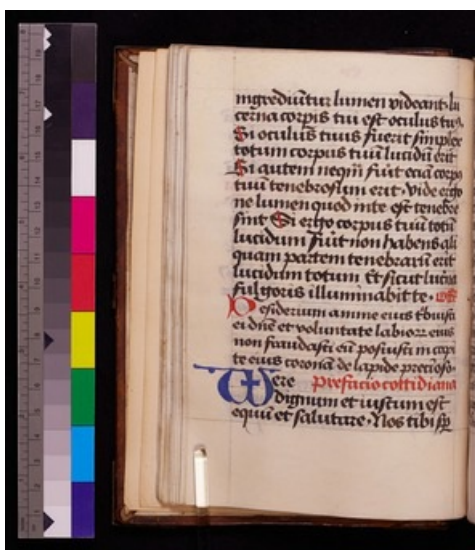 ingrediuntur lumen videant·lu
cerna corpis tui est oculus tuꝰ
Si oculus tuus fuerit simplex
totum corpus tuū lucidū erit
Si autem neqm̄ fūit eciā corpꝰ
tuū tenebrosum erit·Vide ergo
ne lumen quod in te est tenebre
sint Si ergo corpus tuū totū
lucidum fūit non habens ali
quam partem tenebrarū erit
lucidum totum Et sicut lucīna
fulgoris illuminabit te·off̄
Desiderium anime eius t̄buisti
ei dn̄e et voluntate labiorꝝ eius
non fraudasti eū posuisti in capi
te eius coronā de lapide precioso·
Vere Prefacio cottidiana
dignum et iustum est
equū et salutare·Nos tibi sp̄